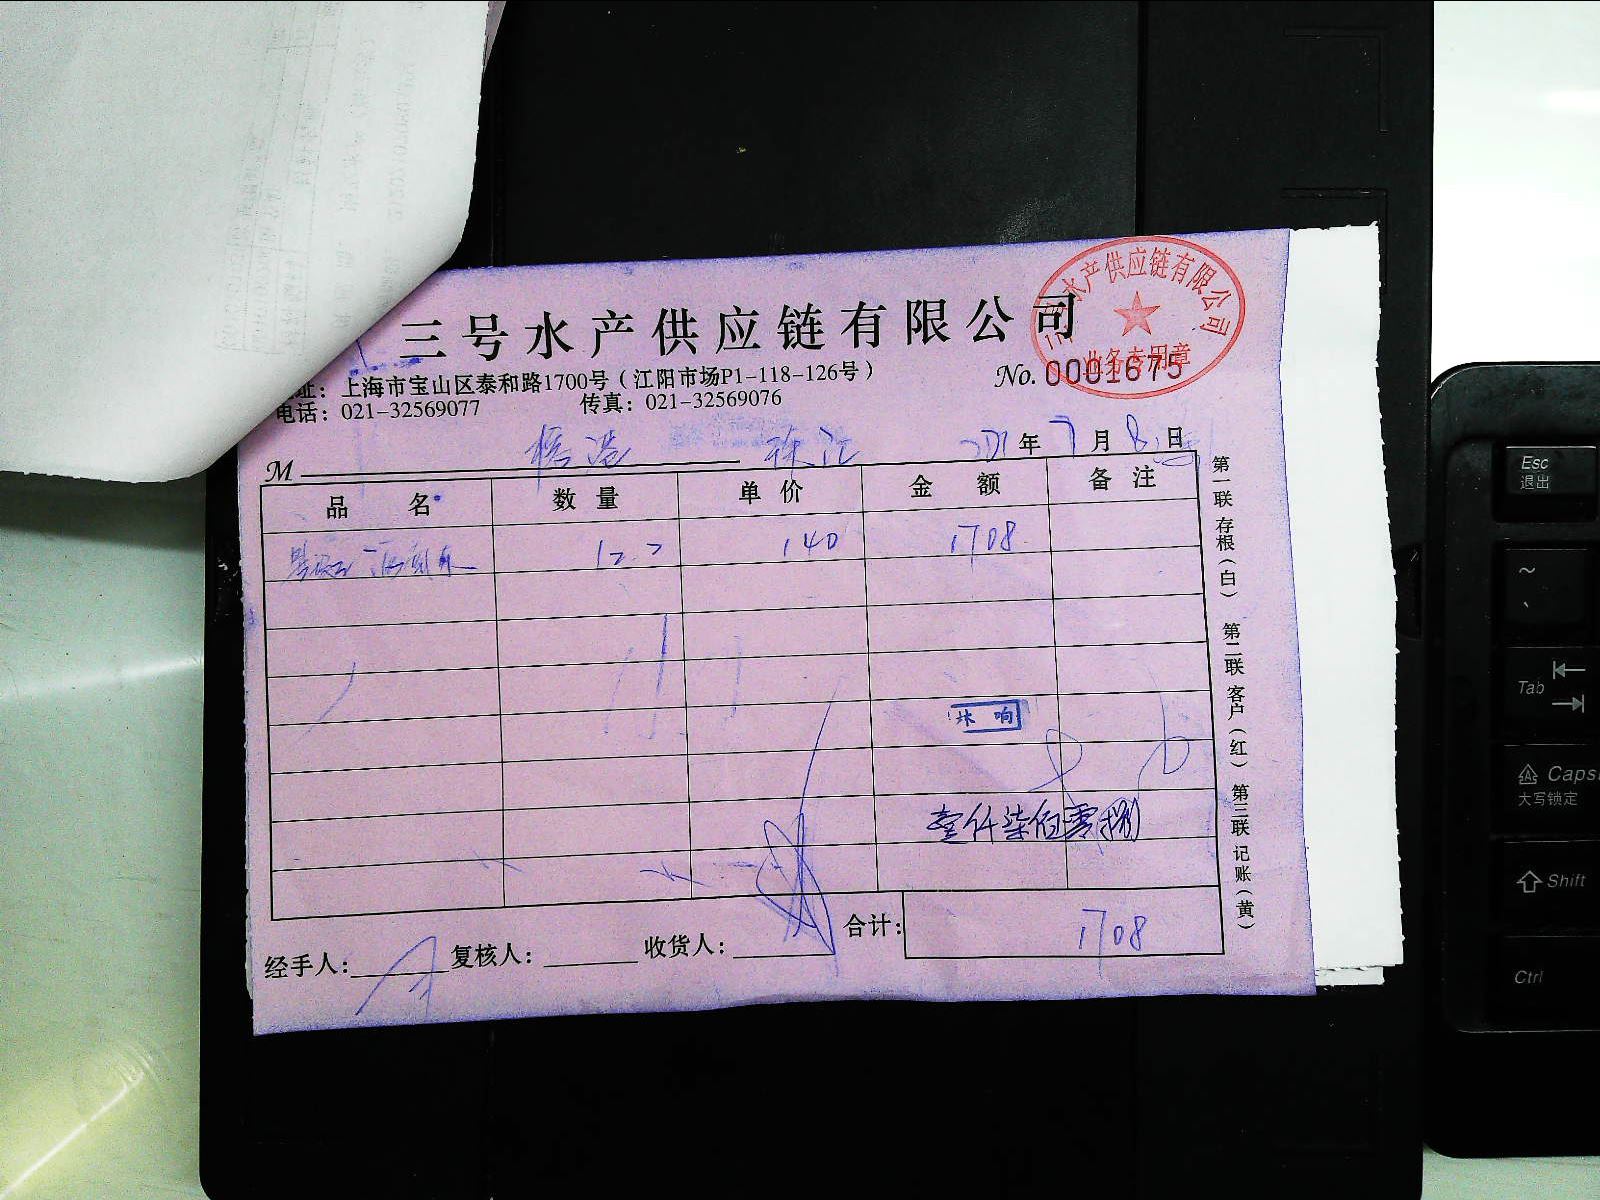 三号水产供应链有限公司
水产供应链有限公司
业务专用章
址：上海市宝山区泰和路1700号（江阳市场P1-118-126号）
No. 0001675
电话：021-32569077 传真：021-32569076
M 年 7 月 8 日
品名 数量 单价 金额 备注
140 1708
壹仟柒佰零捌
合计： 1708
经手人： 复核人： 收货人：
第一联 存根（白） 第二联 客户（红） 第三联 记账（黄）
Esc
退出
~
Tab
Caps
大写锁定
Shift
Ctrl